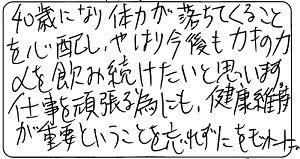 40歳になり体力が落ちてくること
を心配し、やはり今後もカキのカ
αを飲み続けたいと思います。
仕事を頑張る為にも、健康維持
が重要ということを忘れずに